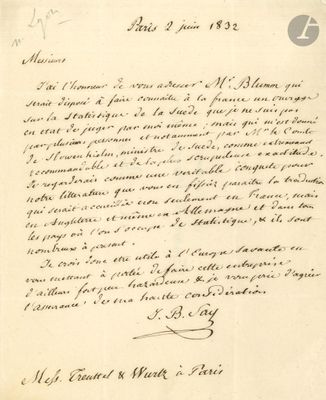 Paris 2 juin 1832
Messieurs
J'ai l'honneur de vous adresser Mr. Blumm qui
serait disposé à faire connaître à la france un ouvrage
sur la Statistique de la Suède que je ne suis pas
en état de juger par moi même ; mais qui m'est donné
par plusieurs personnes et notamment par Mr. le Comte
de Lowenhielm, ministre de Suède, comme extremement
recommandable et de la plus scrupuleuse exactitude.
Je regarderais comme une veritable conquête pour
notre litterature que vous en fissiez paraître la traduction
qui serait accueillie non seulement en France, mais
en Angleterre et même en Allemagne et dans tous
les pays où l'on s'occupe de Statistique, & ils sont
nombreux à present.
Je crois donc être utile à l'Europe savante en
vous mettant à portée de faire cette entreprise
d'ailleurs fort peu hazardeuse & je vous prie d'agréer
l'assurance de ma haute considération
J. B. Say
Mess. Treuttel & Wurtz à Paris